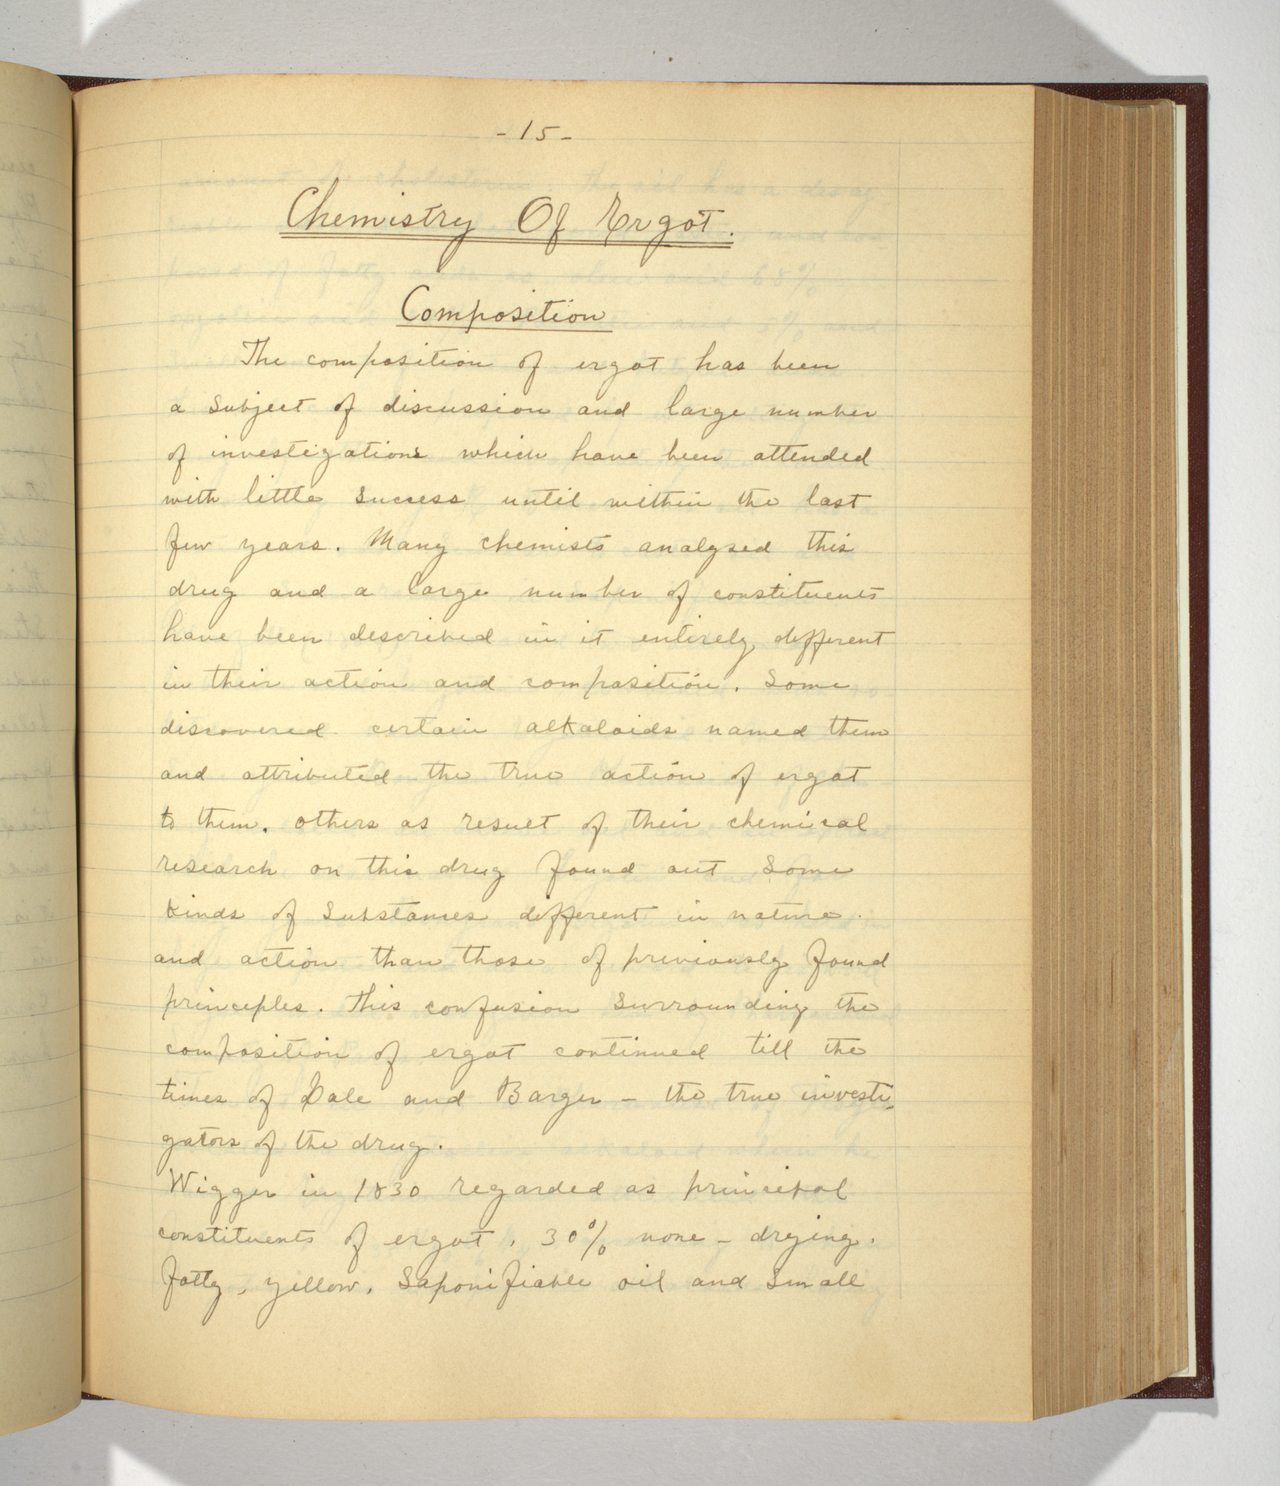 -15-
Chemistry Of Ergot.
Composition
The composition of ergot has been
a subject of discussion and large number
of investigations which have been attended
with little success until within the last
few years. Many chemists analysed this
drug and a large number of constituents
have been described in it entirely different
in their action and composition. Some
discovered certain alkaloids named them
and attributed the true action of ergot
to them. others as result of their chemical
research on this drug found out some
kinds of substances different in nature.
and action than those of previously found
principles. This confusion surrounding the
composition of ergot continued till the
times of Dale and Barger - the true investi-
gators of the drug.
Wigger in 1830 regarded as principal
constituents of ergot, 30% none-drying.
fatty, yellow, saponifiable oil and small